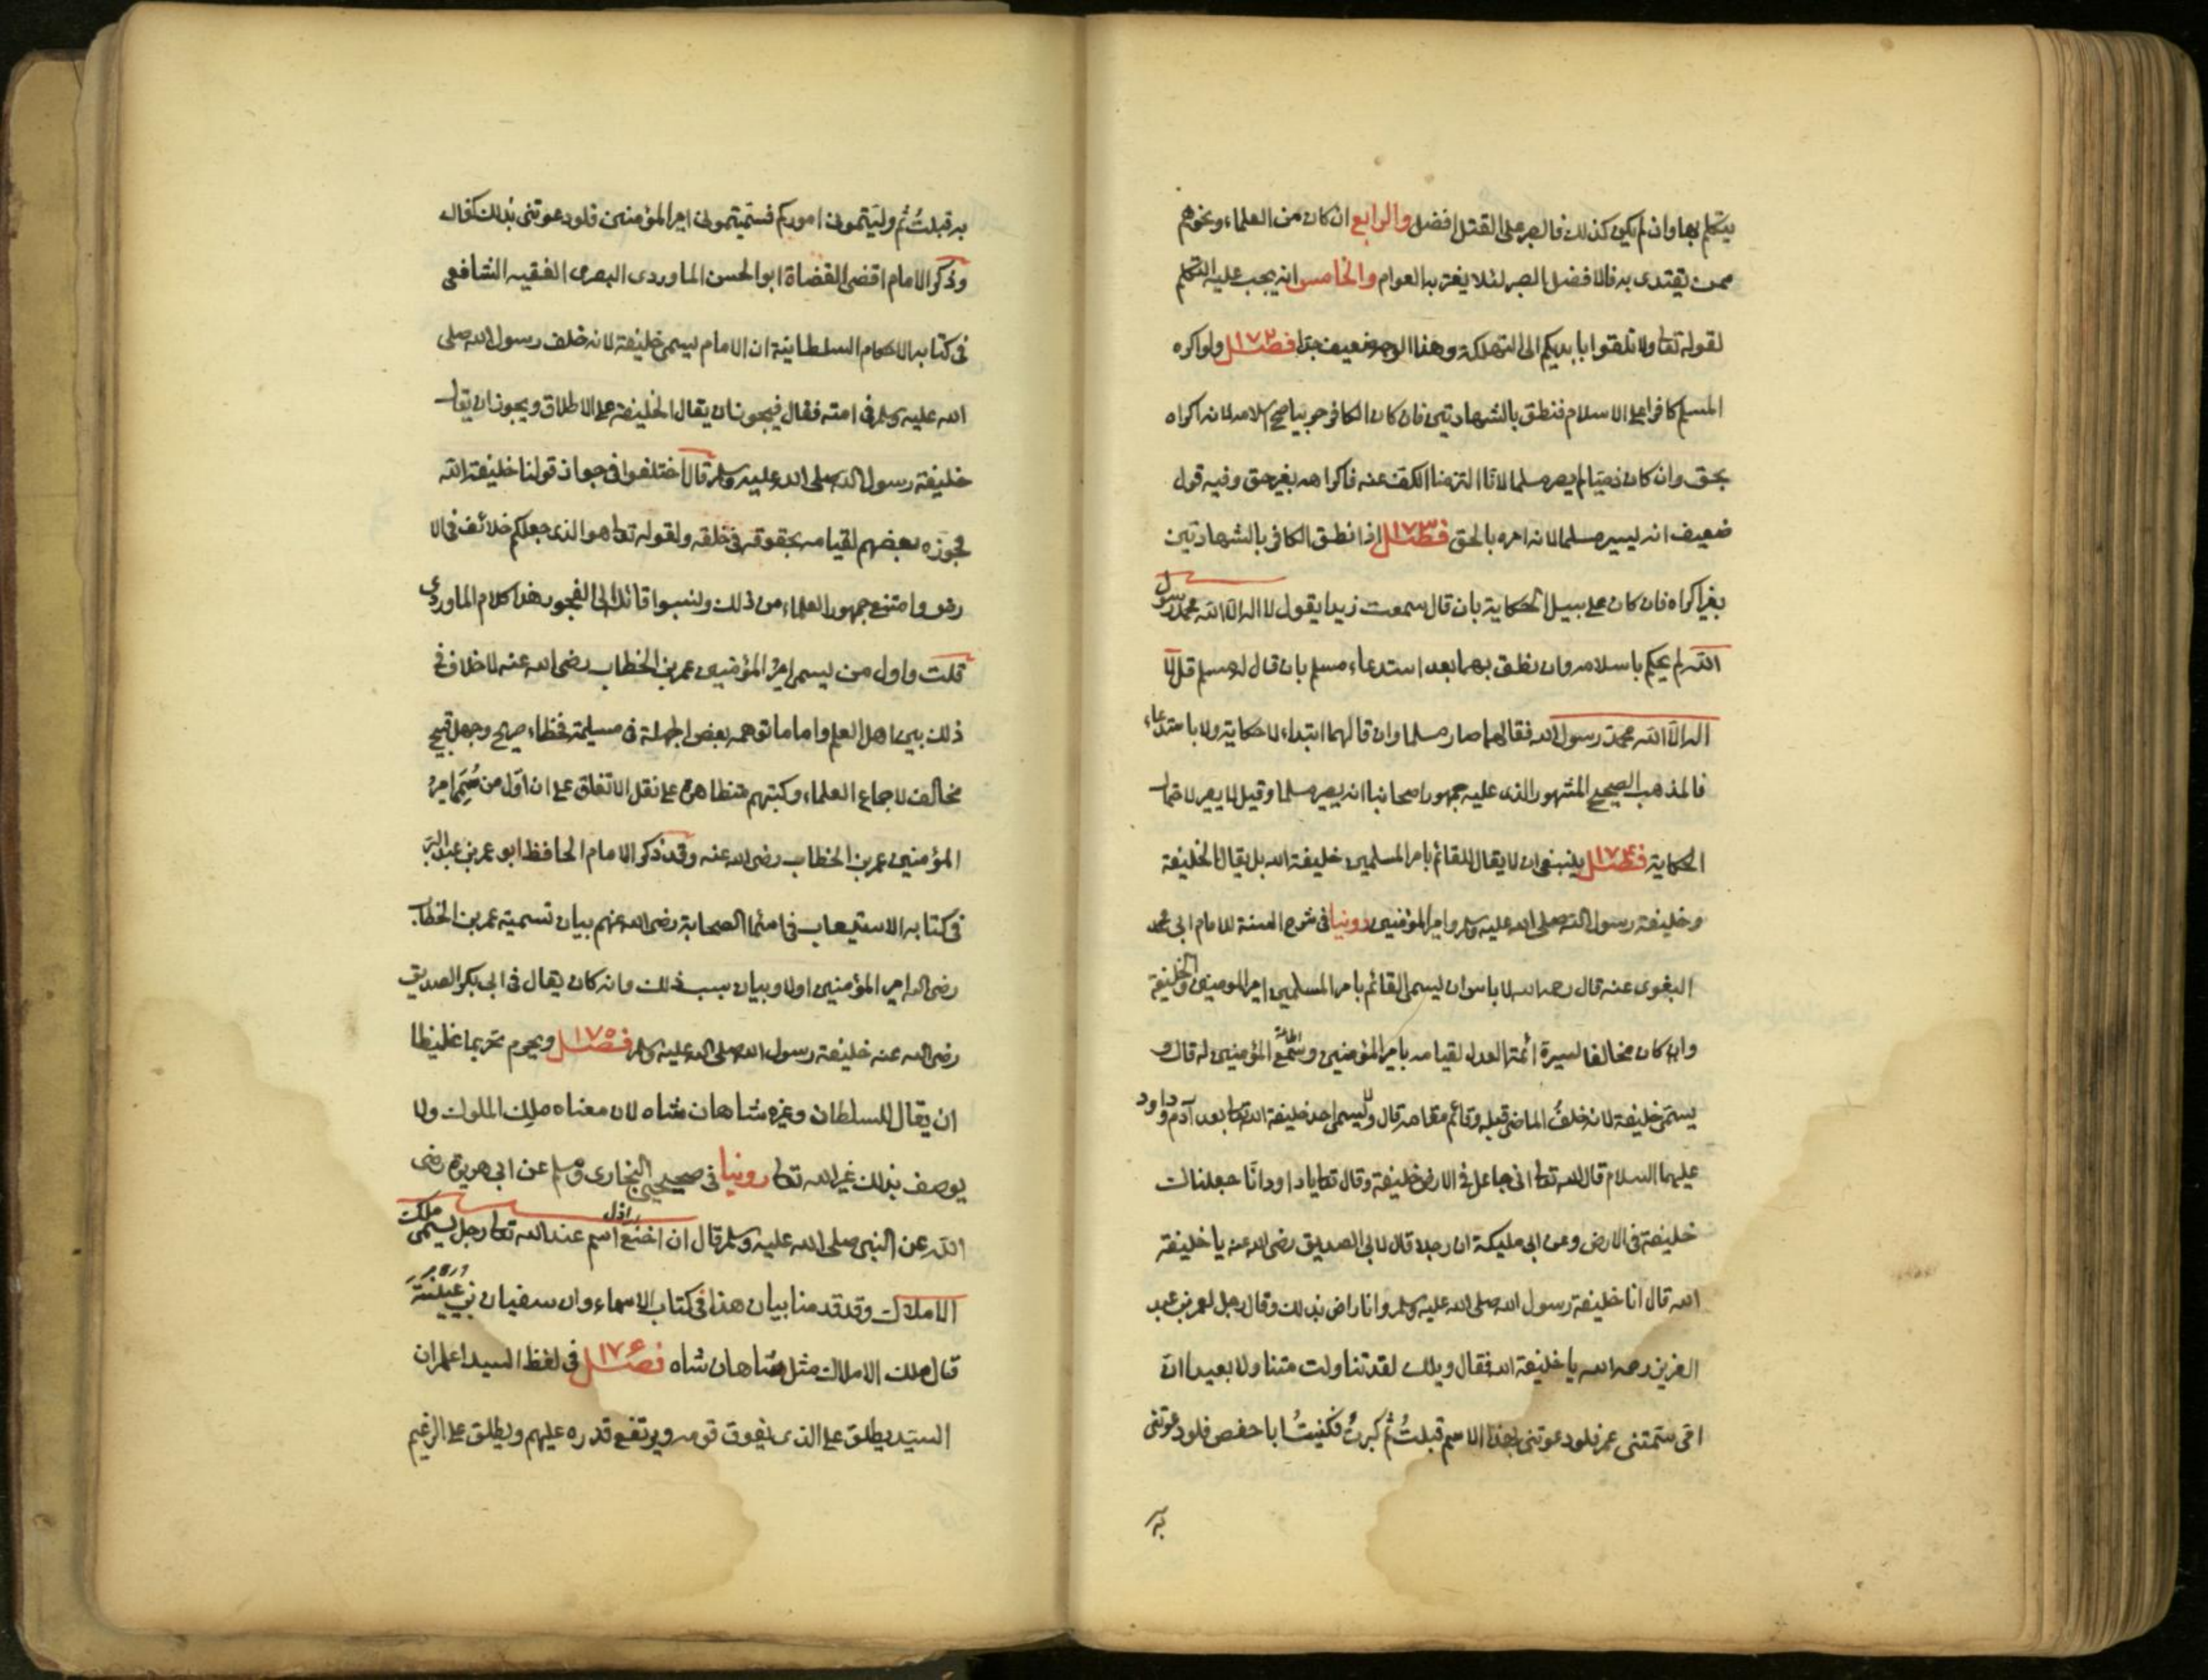 يتكلم بها وان لم يكن كذلك فالصبر على القتل افضل والرابع ان كان من العلماء ونحوهم
ممن يقتدى به فالافضل الصبر لئلا يغتر به العوام والخامس انه يجب عليه التكلم
لقوله تعا ولا تلقوا بايديكم الى التهلكة وهذا الوجه ضعيف جدا فصل ١٧٢ ولو اكره
المسلم كافرا على الاسلام فنطق بالشهادتين فان كان الكافر حربيا صح اسلامه لانه اكراه
بحق وان كان ذميا لم يصر مسلما لانا التزمنا الكف عنه فاكراهه بغير حق وفيه قول
ضعيف انه يصير مسلما لانه امره بالحق فصل ١٧٣ اذا نطق الكافر بالشهادتين
بغير اكراه فان كان على سبيل الحكاية بان قال سمعت زيدا يقول لا اله الا الله محمد رسول
الله لم يحكم باسلامه وان نطق بهما بعد استدعاء مسلم بان قال له مسلم قل لا
اله الا الله محمد رسول الله فقالهما صار مسلما وان قالهما ابتداء لا حكاية ولا باستدعاء
فالمذهب الصحيح المشهور الذى عليه جمهور اصحابنا انه يصير مسلما وقيل لا يصير لاحتمال
الحكاية فصل ١٧٤ ينبغى ان لا يقال للقائم بامر المسلمين خليفة الله بل يقال الخليفة
وخليفة رسول الله صلى الله عليه وسلم وامير المؤمنين روينا فى شرح السنة للامام ابى محمد
البغوى عنه قال رحمه الله لا باس ان يسمى القائم بامر المسلمين امير المومنين والخليفة
وان كان مخالفا لسيرة ائمة العدل لقيامه بامر المؤمنين وسمع المؤمنين له قال و
يسمى خليفة لانه خلف الماضى قبله وقائم مقامه قال ولا يسمى احد خليفة الله تعا بعد آدم وداود
عليهما السلام قال الله تعا انى جاعل فى الارض خليفة وقال تعا يا داود انا جعلناك
خليفة فى الارض وعن ابى مليكة ان رجلا قال لابى الصديق رضى الله عنه يا خليفة
الله قال انا خليفة رسول الله صلى الله عليه وسلم وانا راض بذلك وقال رجل لعمر بن عبد
العزيز رحمه الله يا خليفة الله فقال ويلك لقد تناولت متنا ولا بعيدا ان
امى سمتنى عمر فلو دعوتنى بهذا الاسم قبلتُ ثم كبرتُ فكنيتُ ابا حفص فلو دعوتنى
به
به قبلتُ ثم وليتمونى اموركم فسميتمونى امير المؤمنين فلو دعوتنى بذلك كفاك
وذكر الامام اقضى القضاة ابو الحسن الماوردى البصرى الفقيه الشافعى
فى كتابه الاحكام السلطانية ان الامام يسمى خليفة لانه خلف رسول الله صلى
الله عليه وسلم فى امته فقال فيجوز ان يقال الخليفة على الاطلاق ويجوز ان يقال
خليفة رسول الله صلى الله عليه وسلم قال اختلفوا فى جواز قولنا خليفة الله
فجوزه بعضهم لقيامه بحقوقه فى خلقه ولقوله تعا هو الذى جعلكم خلائف فى الا
رض وامتنع جمهور العلماء من ذلك ونسبوا قائله الى الفجور هذا كلام الماوردى
قلت واول من يسمى امير المؤمنين عمر بن الخطاب رضى الله عنه لا خلاف فى
ذلك بين اهل العلم واما ما توهمه بعض الجهلة فى مسيلمة فخطاء صريح وجهل قبيح
مخالف لاجماع العلماء وكتبهم متظاهرة على نقل الاتفاق على ان اول من سُمى امير
المؤمنين عمر بن الخطاب رضى الله عنه وقد ذكر الامام الحافظ ابو عمر بن عبد البر
فى كتابه الاستيعاب فى اسماء الصحابة رضى الله عنهم بيان تسمية عمر بن الخطاب
رضى الله امير المؤمنين اولا وبيان سبب ذلك وانه كان يقال فى ابى بكر الصديق
رضى الله عنه خليفة رسول الله صلى الله عليه وسلم فصل ١٧٥ ويحرم تحريما غليظا
ان يقال للسلطان وغيره شاهان شاه لان معناه ملك الملوك ولا
يوصف بذلك غير الله تعا روينا فى صحيحى البخارى ومسلم عن ابى هريرة رضى
الله عن النبى صلى الله عليه وسلم قال ان اخنع اسم عند الله تعا رجل يسمى ملك
الاملاك وقد قدمنا بيان هذا فى كتاب الاسماء وان سفيان بن عيينة
قال ملك الاملاك مثل شاهان شاه فصل ١٧٦ فى لفظ السيد اعلم ان
السيد يطلق على الذى يفوق قومه ويرتفع قدره عليهم ويطلق على الزعيم